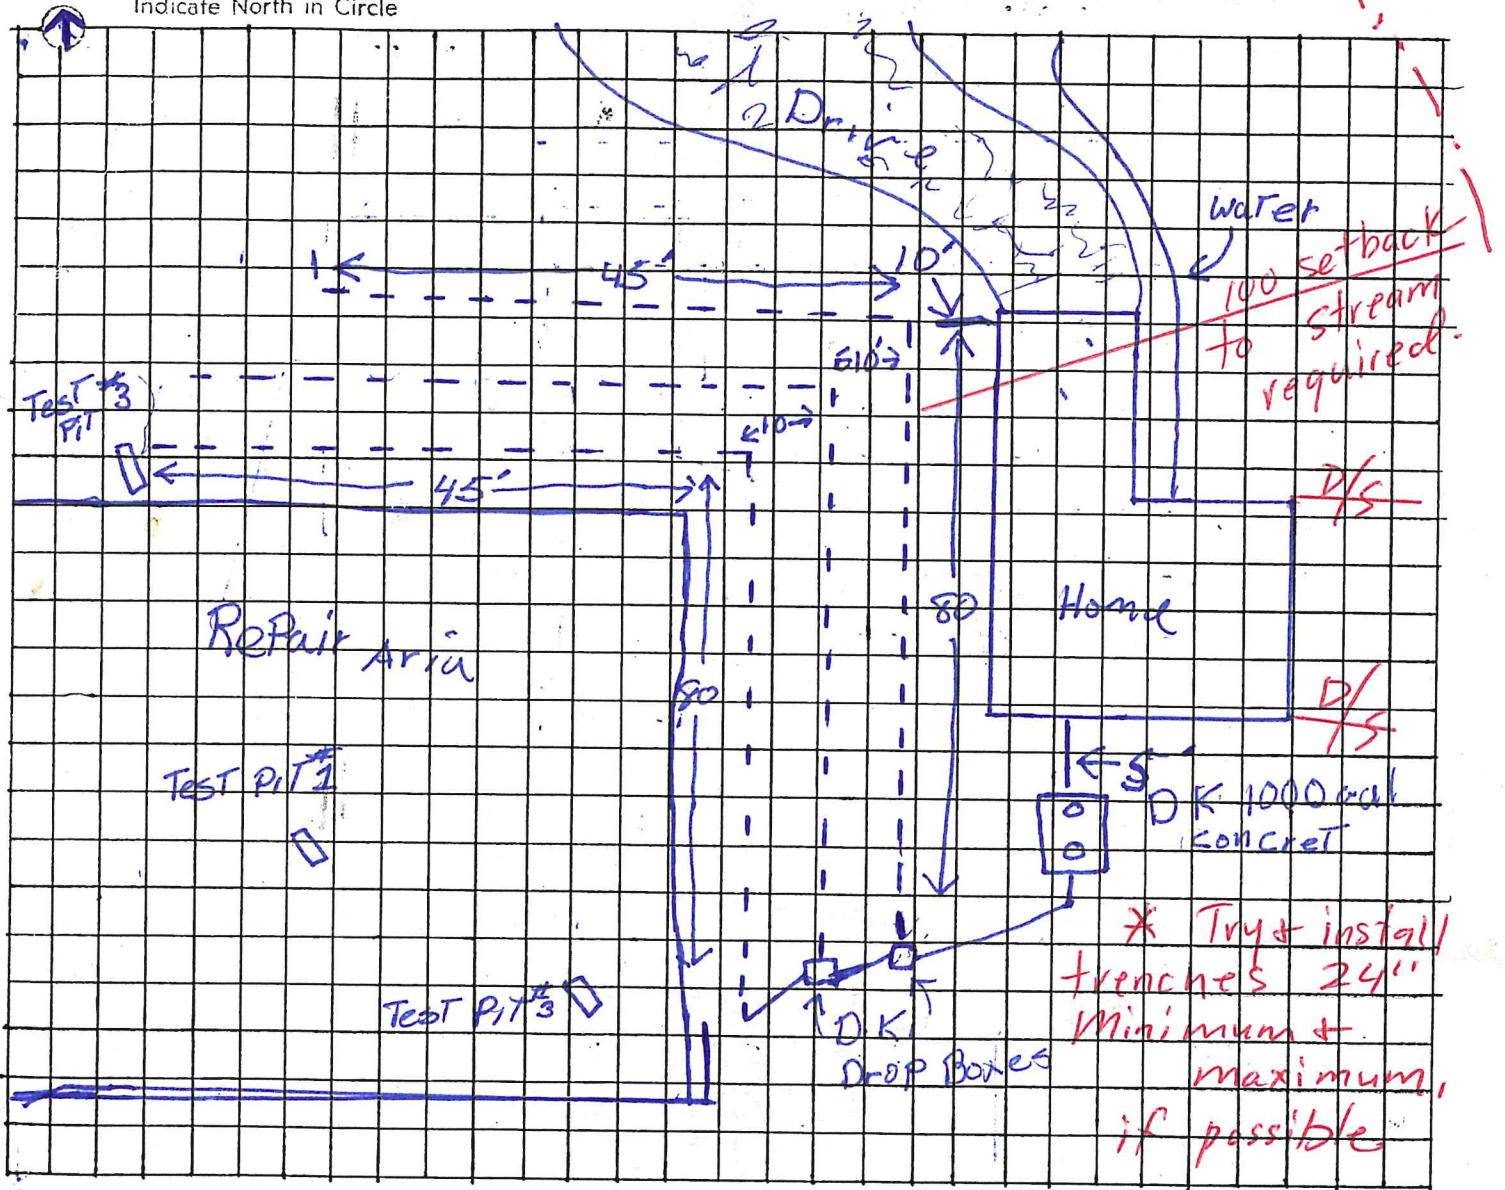 Indicate North in Circle
Drive
water
10'
45'
100 setback
to stream
required.
10'
Test #3
Pit
10
45'
D/S
80
Home
RePair Aria
80
D/S
Test Pit #1
5'
DK 1000 gal
concret
* Try & install
trenches 24"
Minimum &
maximum,
if possible
Test Pit #3
DK
Drop Boxes